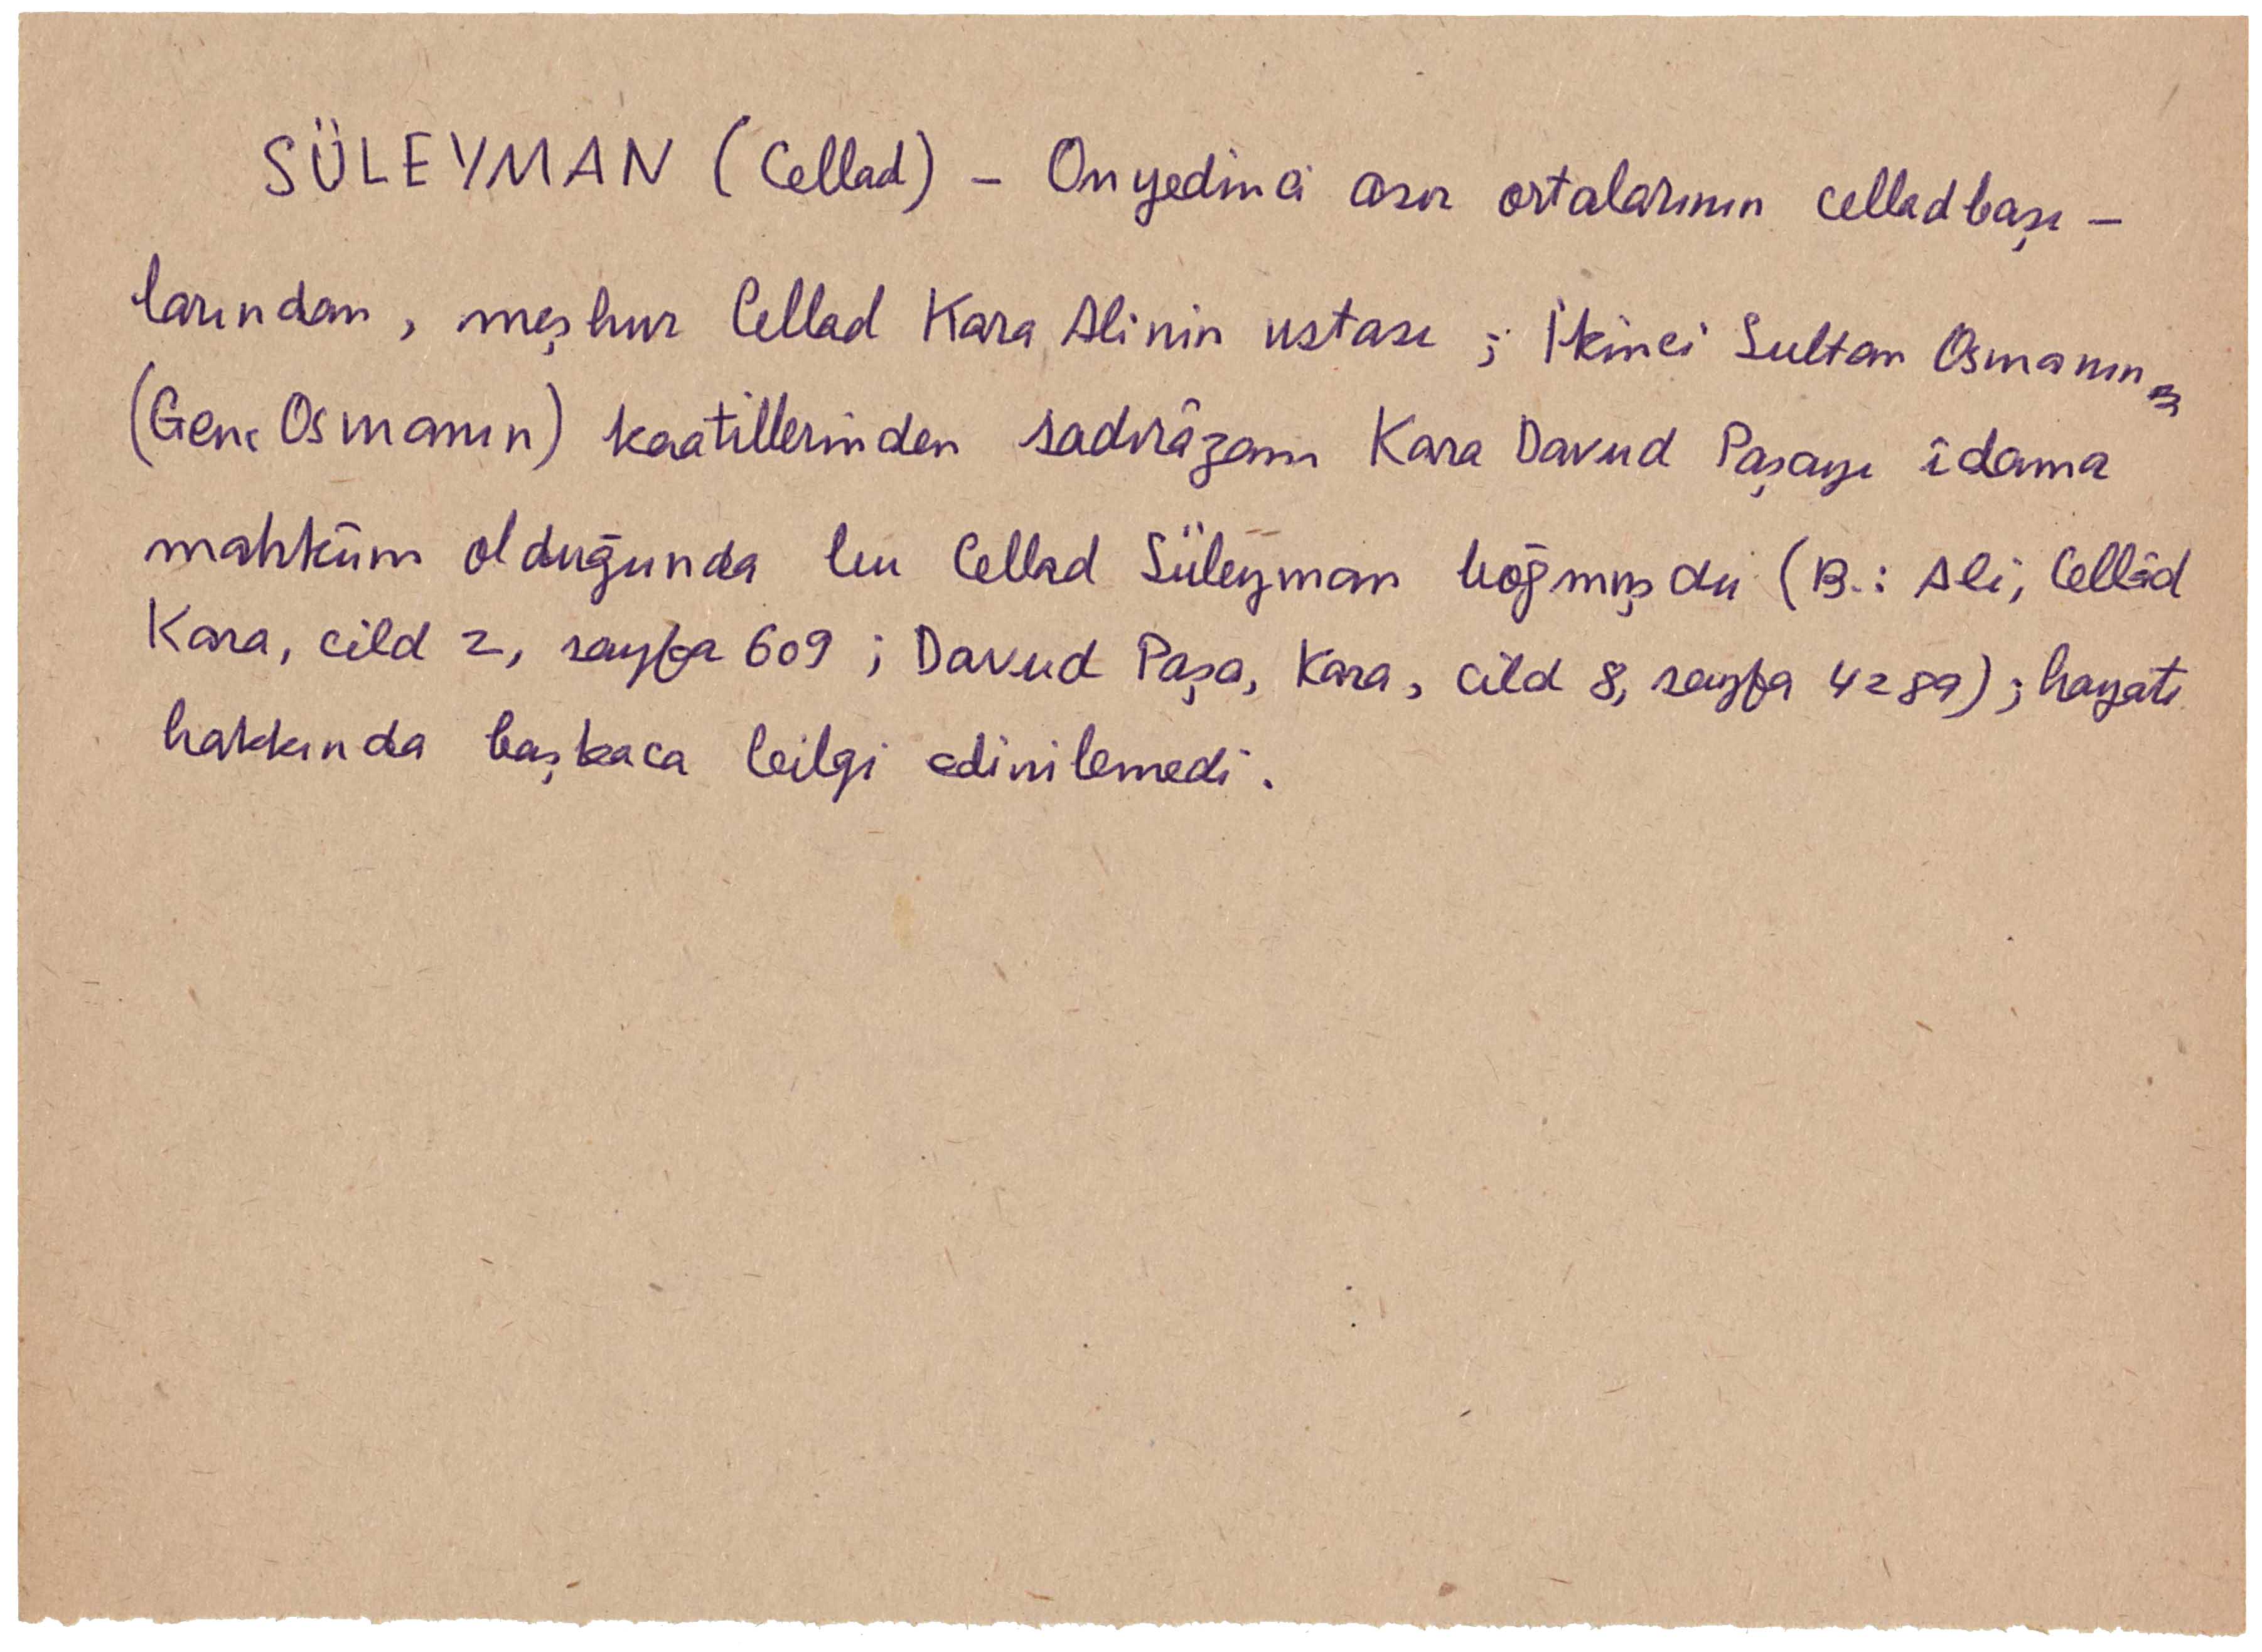 SÜLEYMAN (Cellad) – Onyedinci asır ortalarının celladbaşı –
larından, meşhur Cellad Kara Alinin ustası ; İkinci Sultan Osmanın
(Genc Osmanın) kaatillerinden sadırâzam Kara Davud Paşayı îdama
mahkûm olduğunda bu Cellad Süleyman boğmuşdu (B.: Ali, Cellâd
Kara, cild 2, sayfa 609 ; Davud Paşa, Kara, cild 8, sayfa 4289) ; hayatı
hakkında başkaca bilgi edinilemedi.